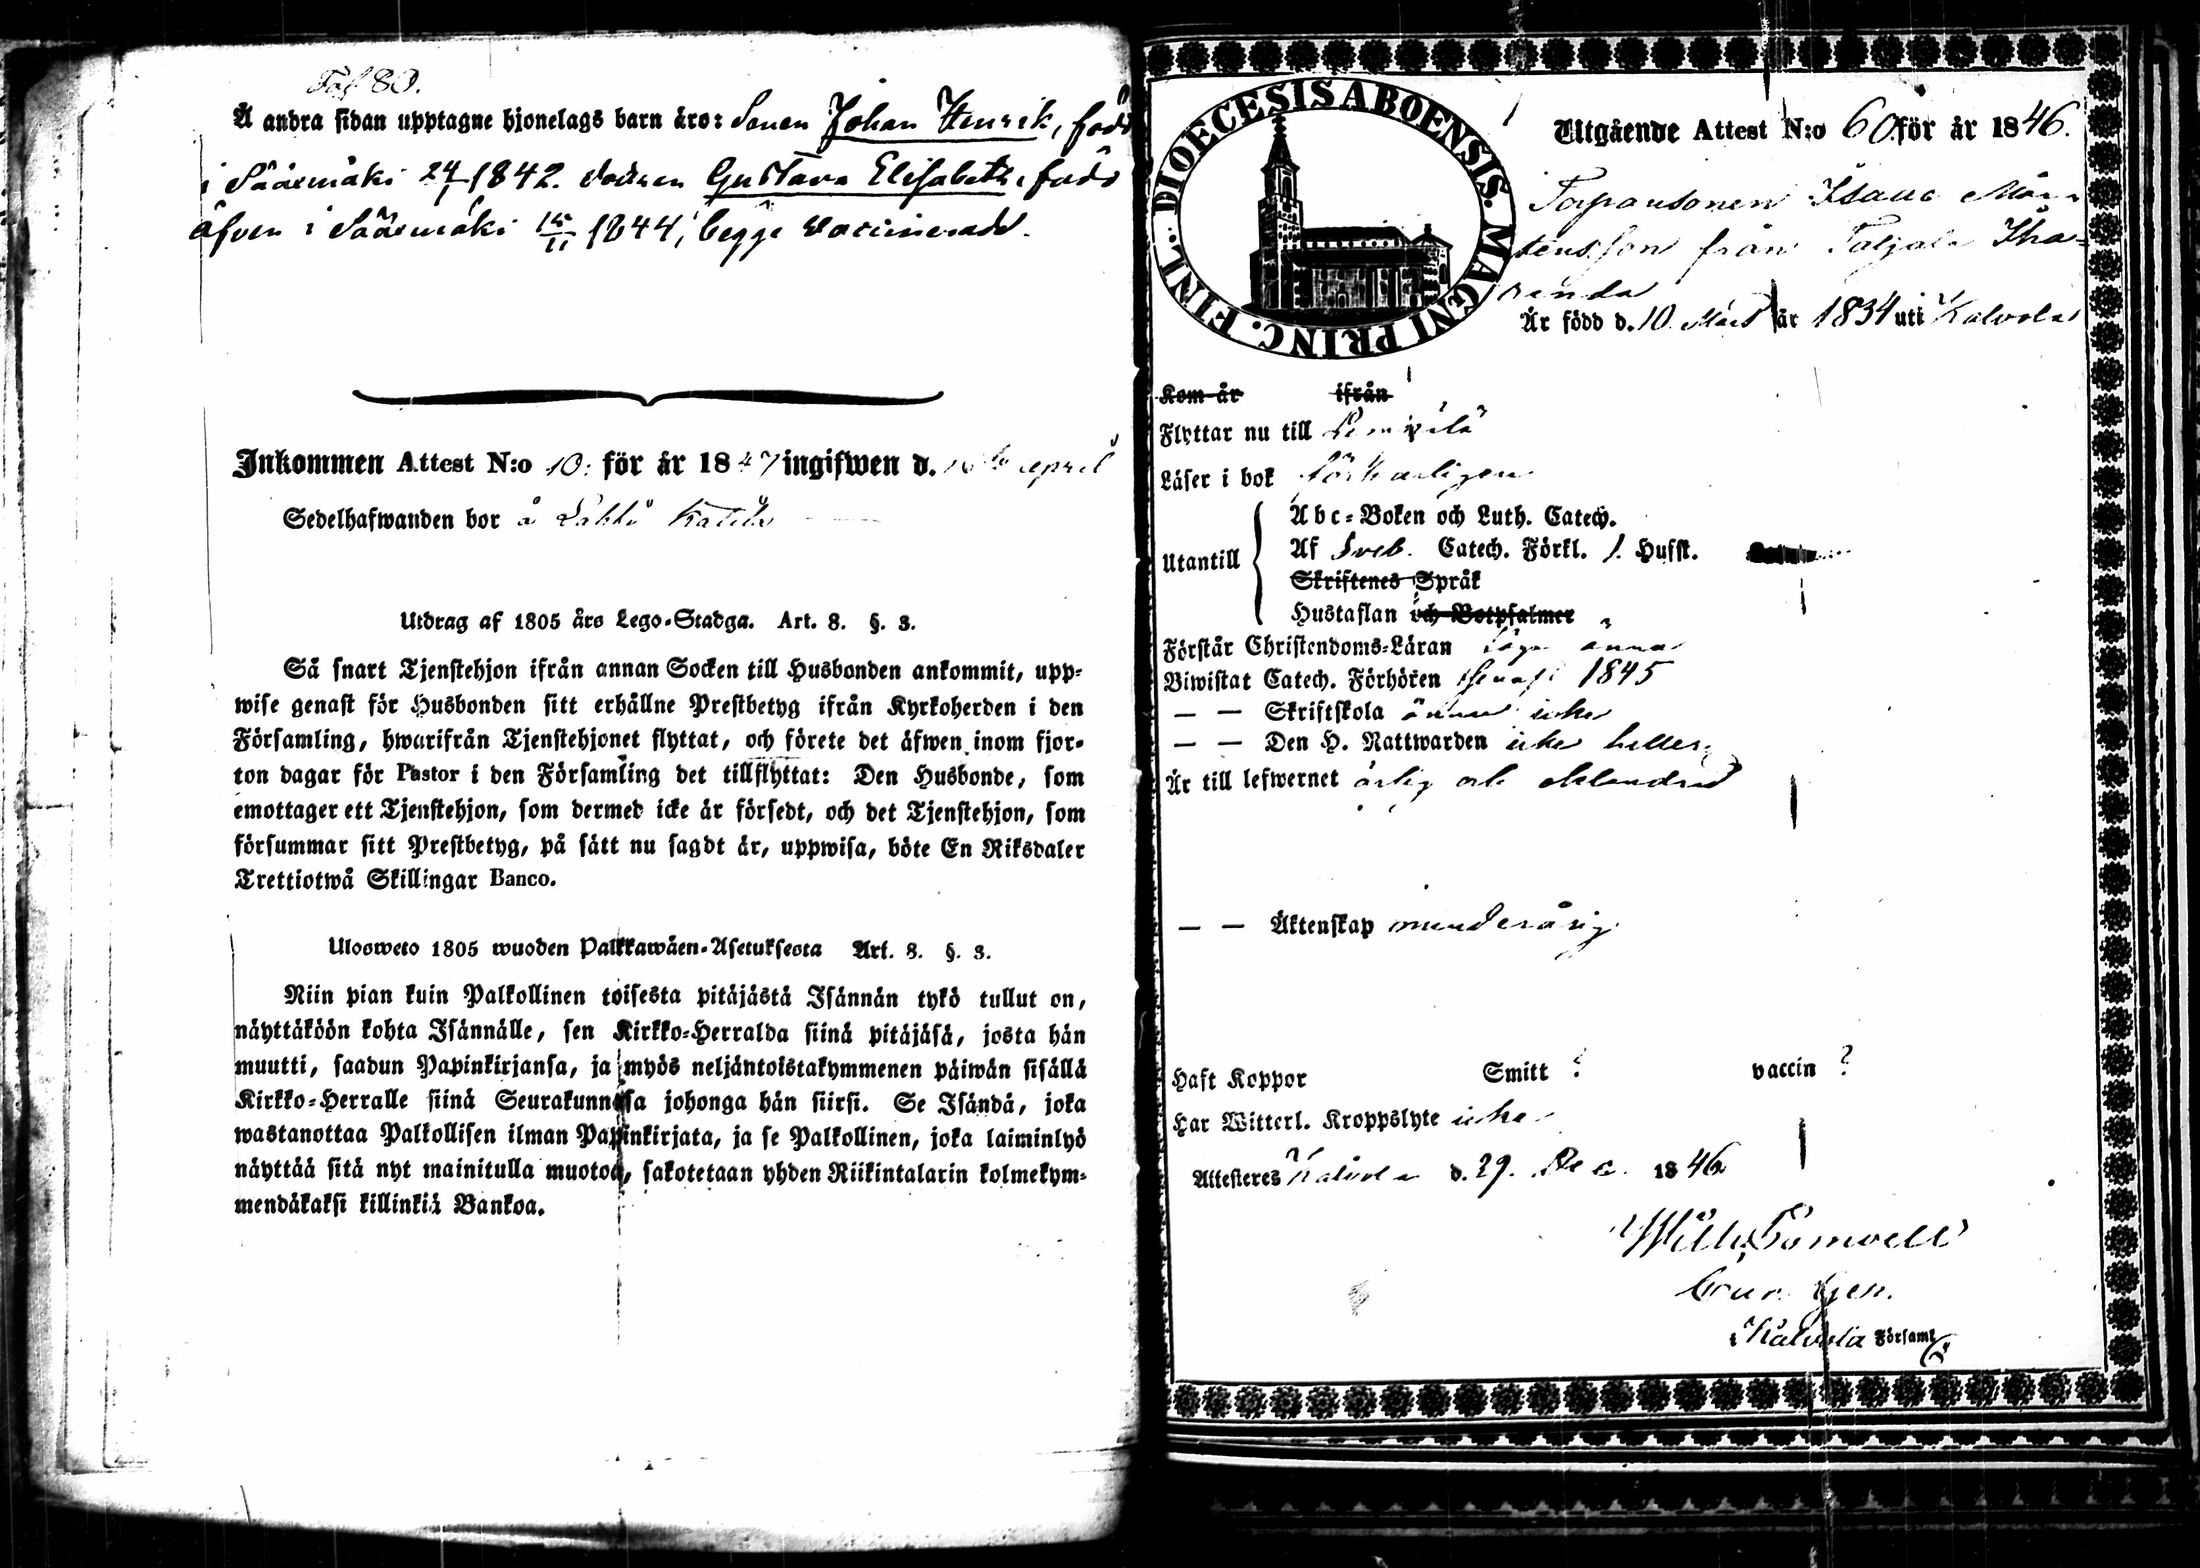 Fol 80.
Å andra sidan upptagne hjonelags barn äro: Sonen Johan Henrik, född
i Sääxmäki 24/1 1842. dottren Gustava Elisabeth, född
äfven i Sääxmäki 15/11 1844, begge vaccinerade.
Inkommen Attest N:o 10: för år 1847 ingifwen d. april
Sedelhafwanden bor å
Utdrag af 1805 års Lego-Stadga. Art. 8. §. 3.
Så snart Tjenstehjon ifrån annan Socken till Husbonden ankommit, upp-
wise genast för Husbonden sitt erhållne Prestbetyg ifrån Kyrkoherden i den
Församling, hwarifrån Tjenstehjonet flyttat, och förete det äfwen inom fjor-
ton dagar för Pastor i den Församling det tillflyttat: Den Husbonde, som
emottager ett Tjenstehjon, som dermed icke är försedt, och det Tjenstehjon, som
försummar sitt Prestbetyg, på sätt nu sagdt är, uppwisa, böte En Riksdaler
Trettiotwå Skillingar Banco.
Ulosweto 1805 wuoden Palkkawäen-Asetuksesta Art. 8. §. 3.
Niin pian kuin Palkollinen toisesta pitäjästä Isännän tykö tullut on,
näyttäköön kohta Isännälle, sen Kirkko-Herralda siinä pitäjäsä, josta hän
muutti, saadun Papinkirjansa, ja myös neljäntoistakymmenen päiwän sisällä
Kirkko-Herralle siinä Seurakunnasa johonga hän siirsi. Se Isändä, joka
wastanottaa Palkollisen ilman Papinkirjata, ja se Palkollinen, joka laiminlyö
näyttää sitä nyt mainitulla muotoa, sakotetaan yhden Riikintalarin kolmekym-
mendäkaksi killinkiä Bankoa.
DIOECESIS ABOENSIS. MAGNI PRINC. FINL.
Utgående Attest N:o 60 för år 1846.
Torparsonen Isaac Mår-
tensson från Taljala Iha-
rinda
Är född d. 10 Mars år 1834 uti Kalvola
Kom år ifrån
Flyttar nu till Lempälä
Läser i bok försvarligen
Utantill
Abc-Boken och Luth. Catech.
Af Sveb. Catech. Förkl. 1. Hufst.
Skriftenes Språk
Hustaflan och Botpsalmer
Förstår Christendoms-Läran
Biwistat Catech. Förhören 1845
— — Skriftskola ännu icke
— — Den H. Nattwarden icke heller
Är till lefwernet ärlig och oklandrad
— — Äktenskap minderårig
Haft Koppor Smitt ? vaccin ?
Har Witterl. Kroppslyte icke
Attesteras Kalvola d. 29. Dec. 1846
Wilh.
i Kalvola Församl.